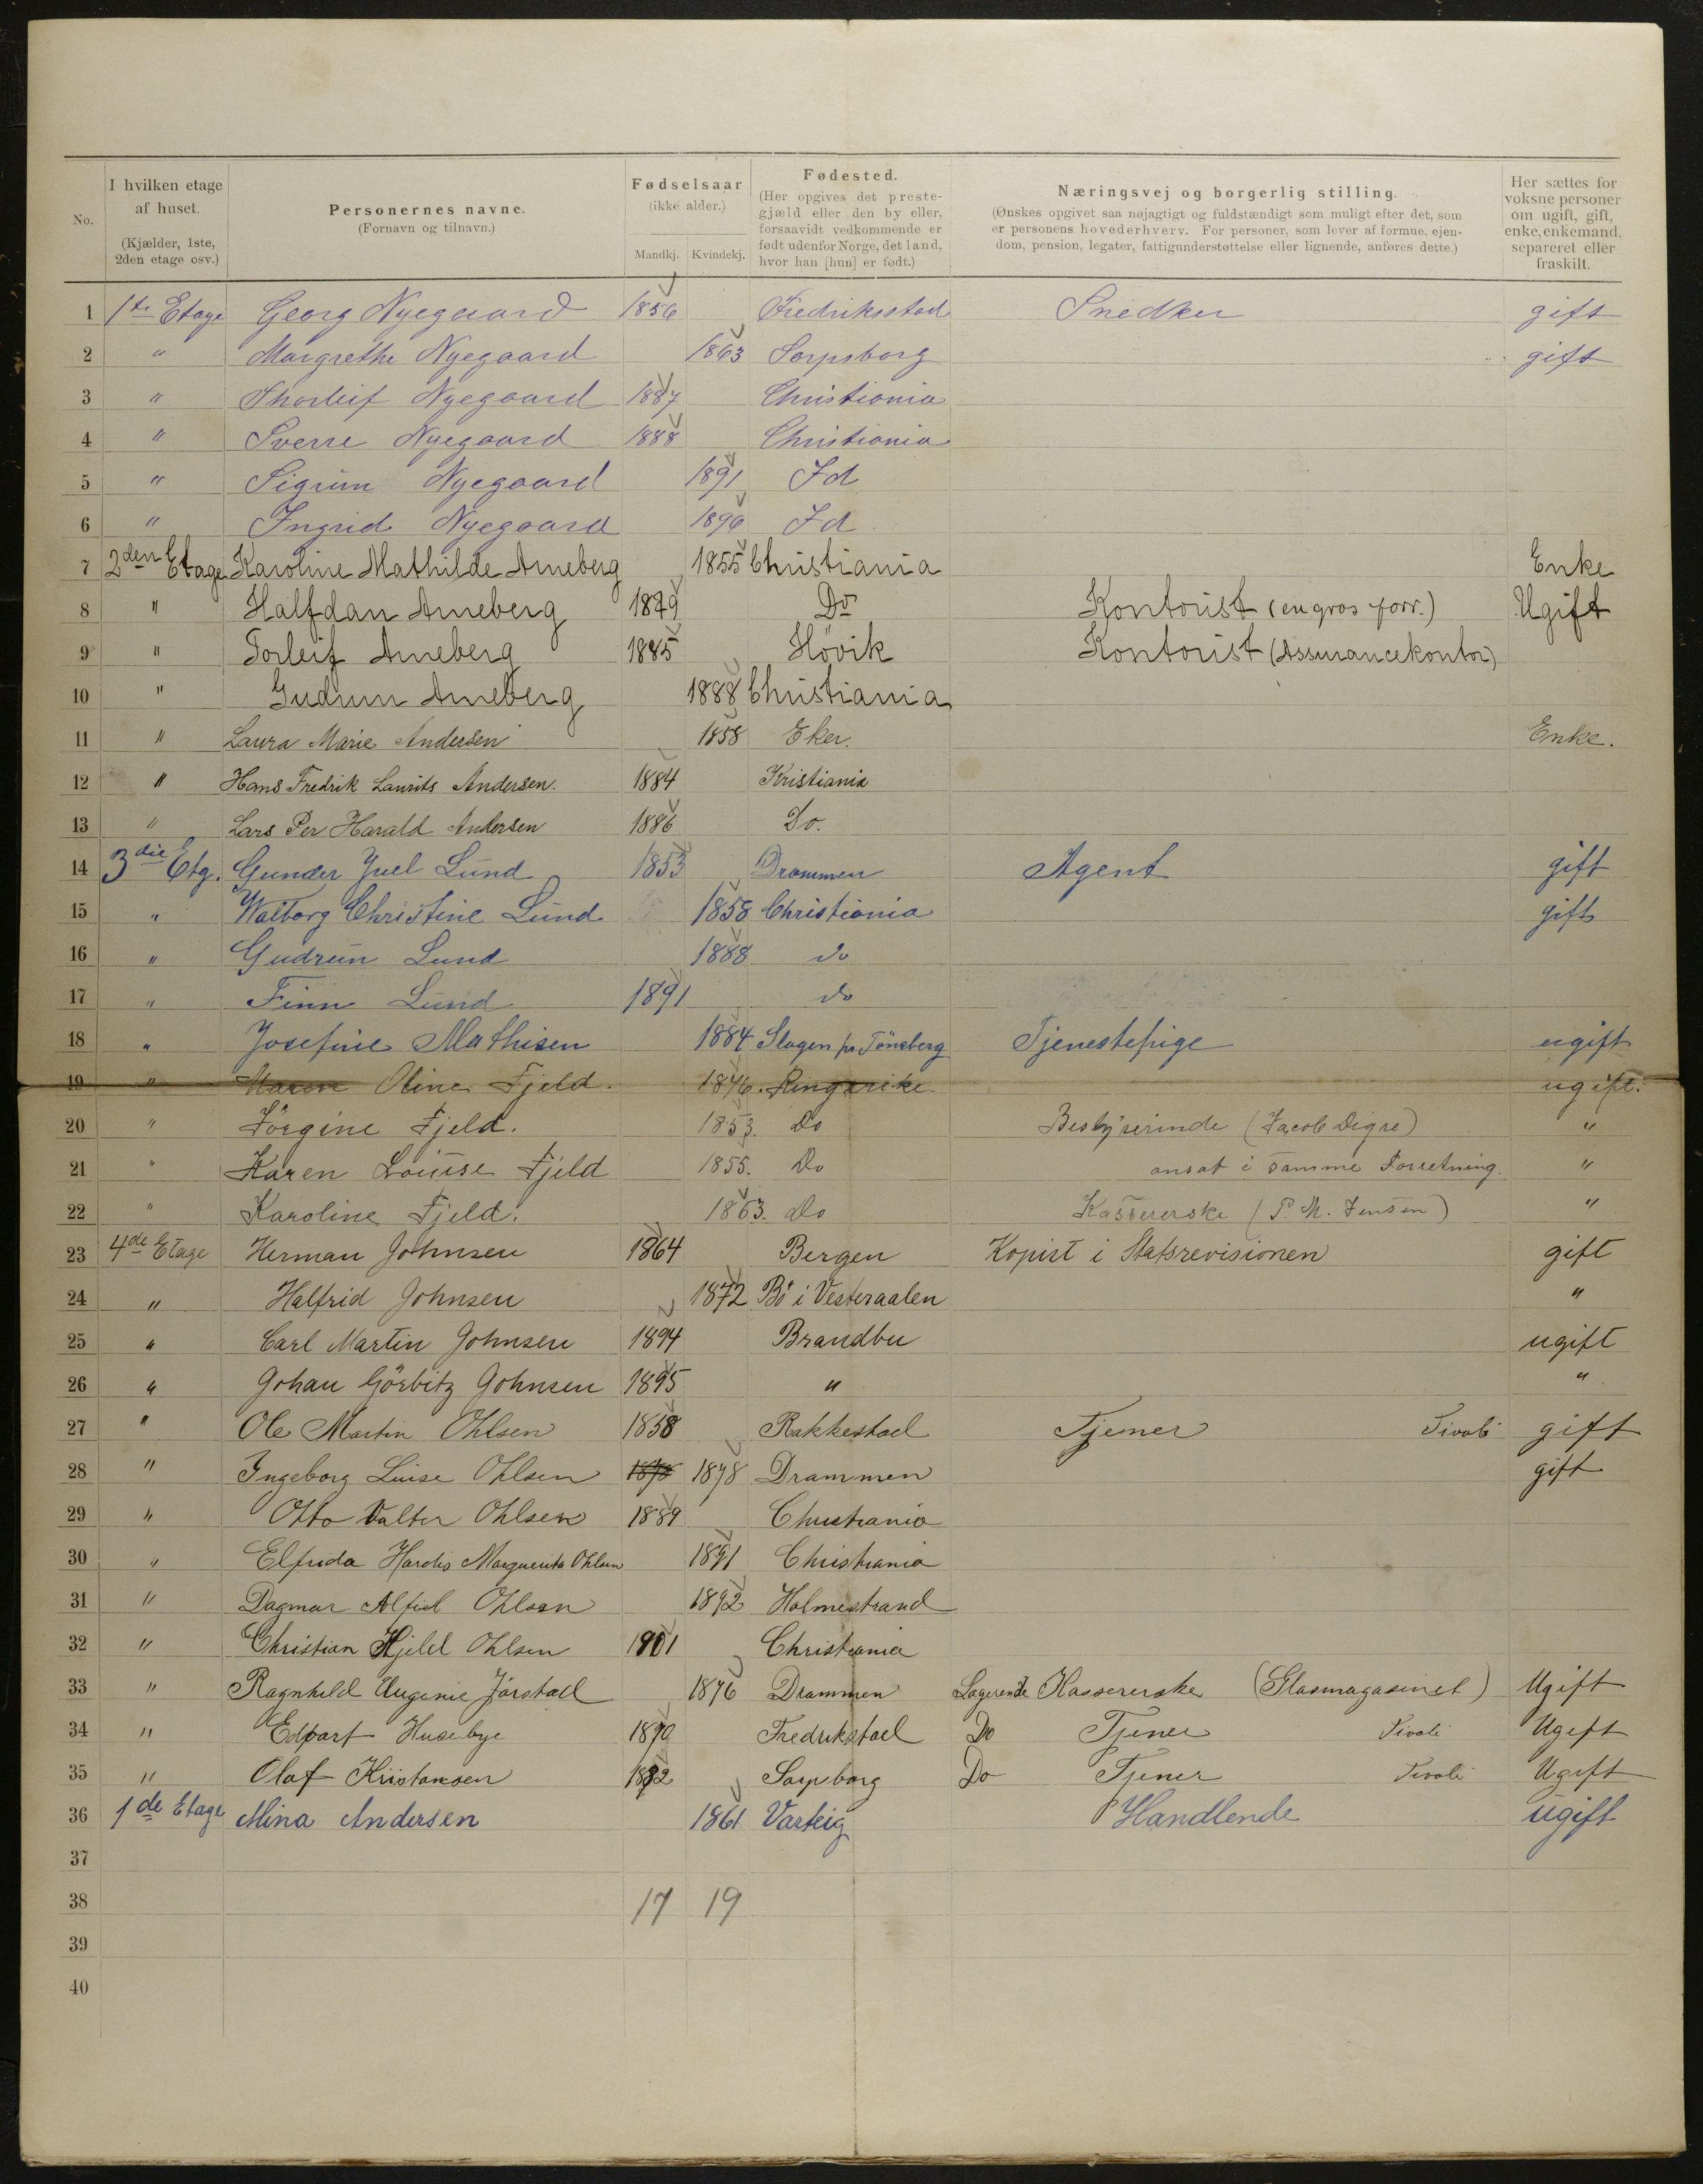 No. I hvilken etage af huset. (Kjælder, 1ste, 2den etage osv.) Personernes navne. (Fornavn og tilnavn.) Fødselsaar (ikke alder.) Mandkj. Kvindekj. Fødested. (Her opgives det prestegjæld eller den by eller, forsaavidt vedkommende er født udenfor Norge, det land, hvor han [hun] er født.) Næringsvej og borgerlig stilling. (Ønskes opgivet saa nøjagtigt og fuldstændigt som muligt efter det, som er personens hovederhverv. For personer, som lever af formue, ejendom, pension, legater, fattigunderstøttelse eller lignende, anføres dette.) Her sættes for voksne personer om ugift, gift, enke, enkemand, separeret eller fraskilt.
1 1ste Etage Georg Nyegaard 1856 Fredriksstad Snedker gift
2 " Margrethe Nyegaard 1863 Sarpsborg gift
3 " Thorleif Nyegaard 1887 Christiania
4 " Sverre Nyegaard 1888 Christiania
5 " Sigrun Nyegaard 1891 Id
6 " Ingrid Nyegaard 1896 Id
7 2den Etage Karoline Mathilde Arneberg 1855 Christiania Enke
8 " Halfdan Arneberg 1879 Do Kontorist (en gros forr.) Ugift
9 " Torleif Arneberg 1885 Hövik Kontorist (Assurancekontor)
10 " Gudrun Arneberg 1888 Christiania
11 " Laura Marie Andersen 1858 Eker. Enke.
12 " Hans Fredrik Laurits Andersen. 1884 Kristiania
13 " Lars Per Harald Andersen 1886 Do.
14 3die Etg. Gunder Juel Lund 1853 Drammen Agent gift
15 " Walborg Christine Lund 1858 Christiania gift
16 " Gudrun Lund 1888 do
17 " Finn Lund 1891 do
18 " Josefine Mathisen 1884 Slagen pr Tönsberg Tjenestepige ugift
19 " Maren Oline Fjeld. 1846. Ringerike. ugift.
20 " Jörgine Fjeld. 1853. Do Bestyrerinde (Jacob Digre) "
21 " Karen Louise Fjeld 1855. Do ansat i samme Forretning. "
22 " Karoline Fjeld. 1863. Do Kassererske (P. M. Jensen) "
23 4de Etage Herman Johnsen 1864 Bergen Kopist i Statsrevisionen gift
24 " Halfrid Johnsen 1872 Bö i Vesteraalen "
25 " Carl Martin Johnsen 1894 Brandbu ugift
26 " Johan Görbitz Johnsen 1895 " "
27 " Ole Martin Ohlsen 1858 Rakkestad Tjener Tivoli gift
28 " Ingeborg Luise Ohlsen 1878 Drammen gift
29 " Otto Valter Ohlsen 1889 Christiania
30 " Elfrida Hardis Marguerita Ohlsen 1891 Christiania
31 " Dagmar Alfild Ohlsen 1892 Holmestrand
32 " Christian Hjeld Ohlsen 1901 Christiania
33 " Ragnhild Eugenie Jörstad 1876 Drammen Logerende Kassererske (Glasmagasinet) Ugift
34 " Edvart Husebye 1870 Fredrikstad Do Tjener Tivoli Ugift
35 " Olaf Kristansen 1882 Sarpsborg Do Tjener Tivoli Ugift
36 1de Etage Mina Andersen 1861 Varteig Handlende ugift
37
38 17 19
39
40